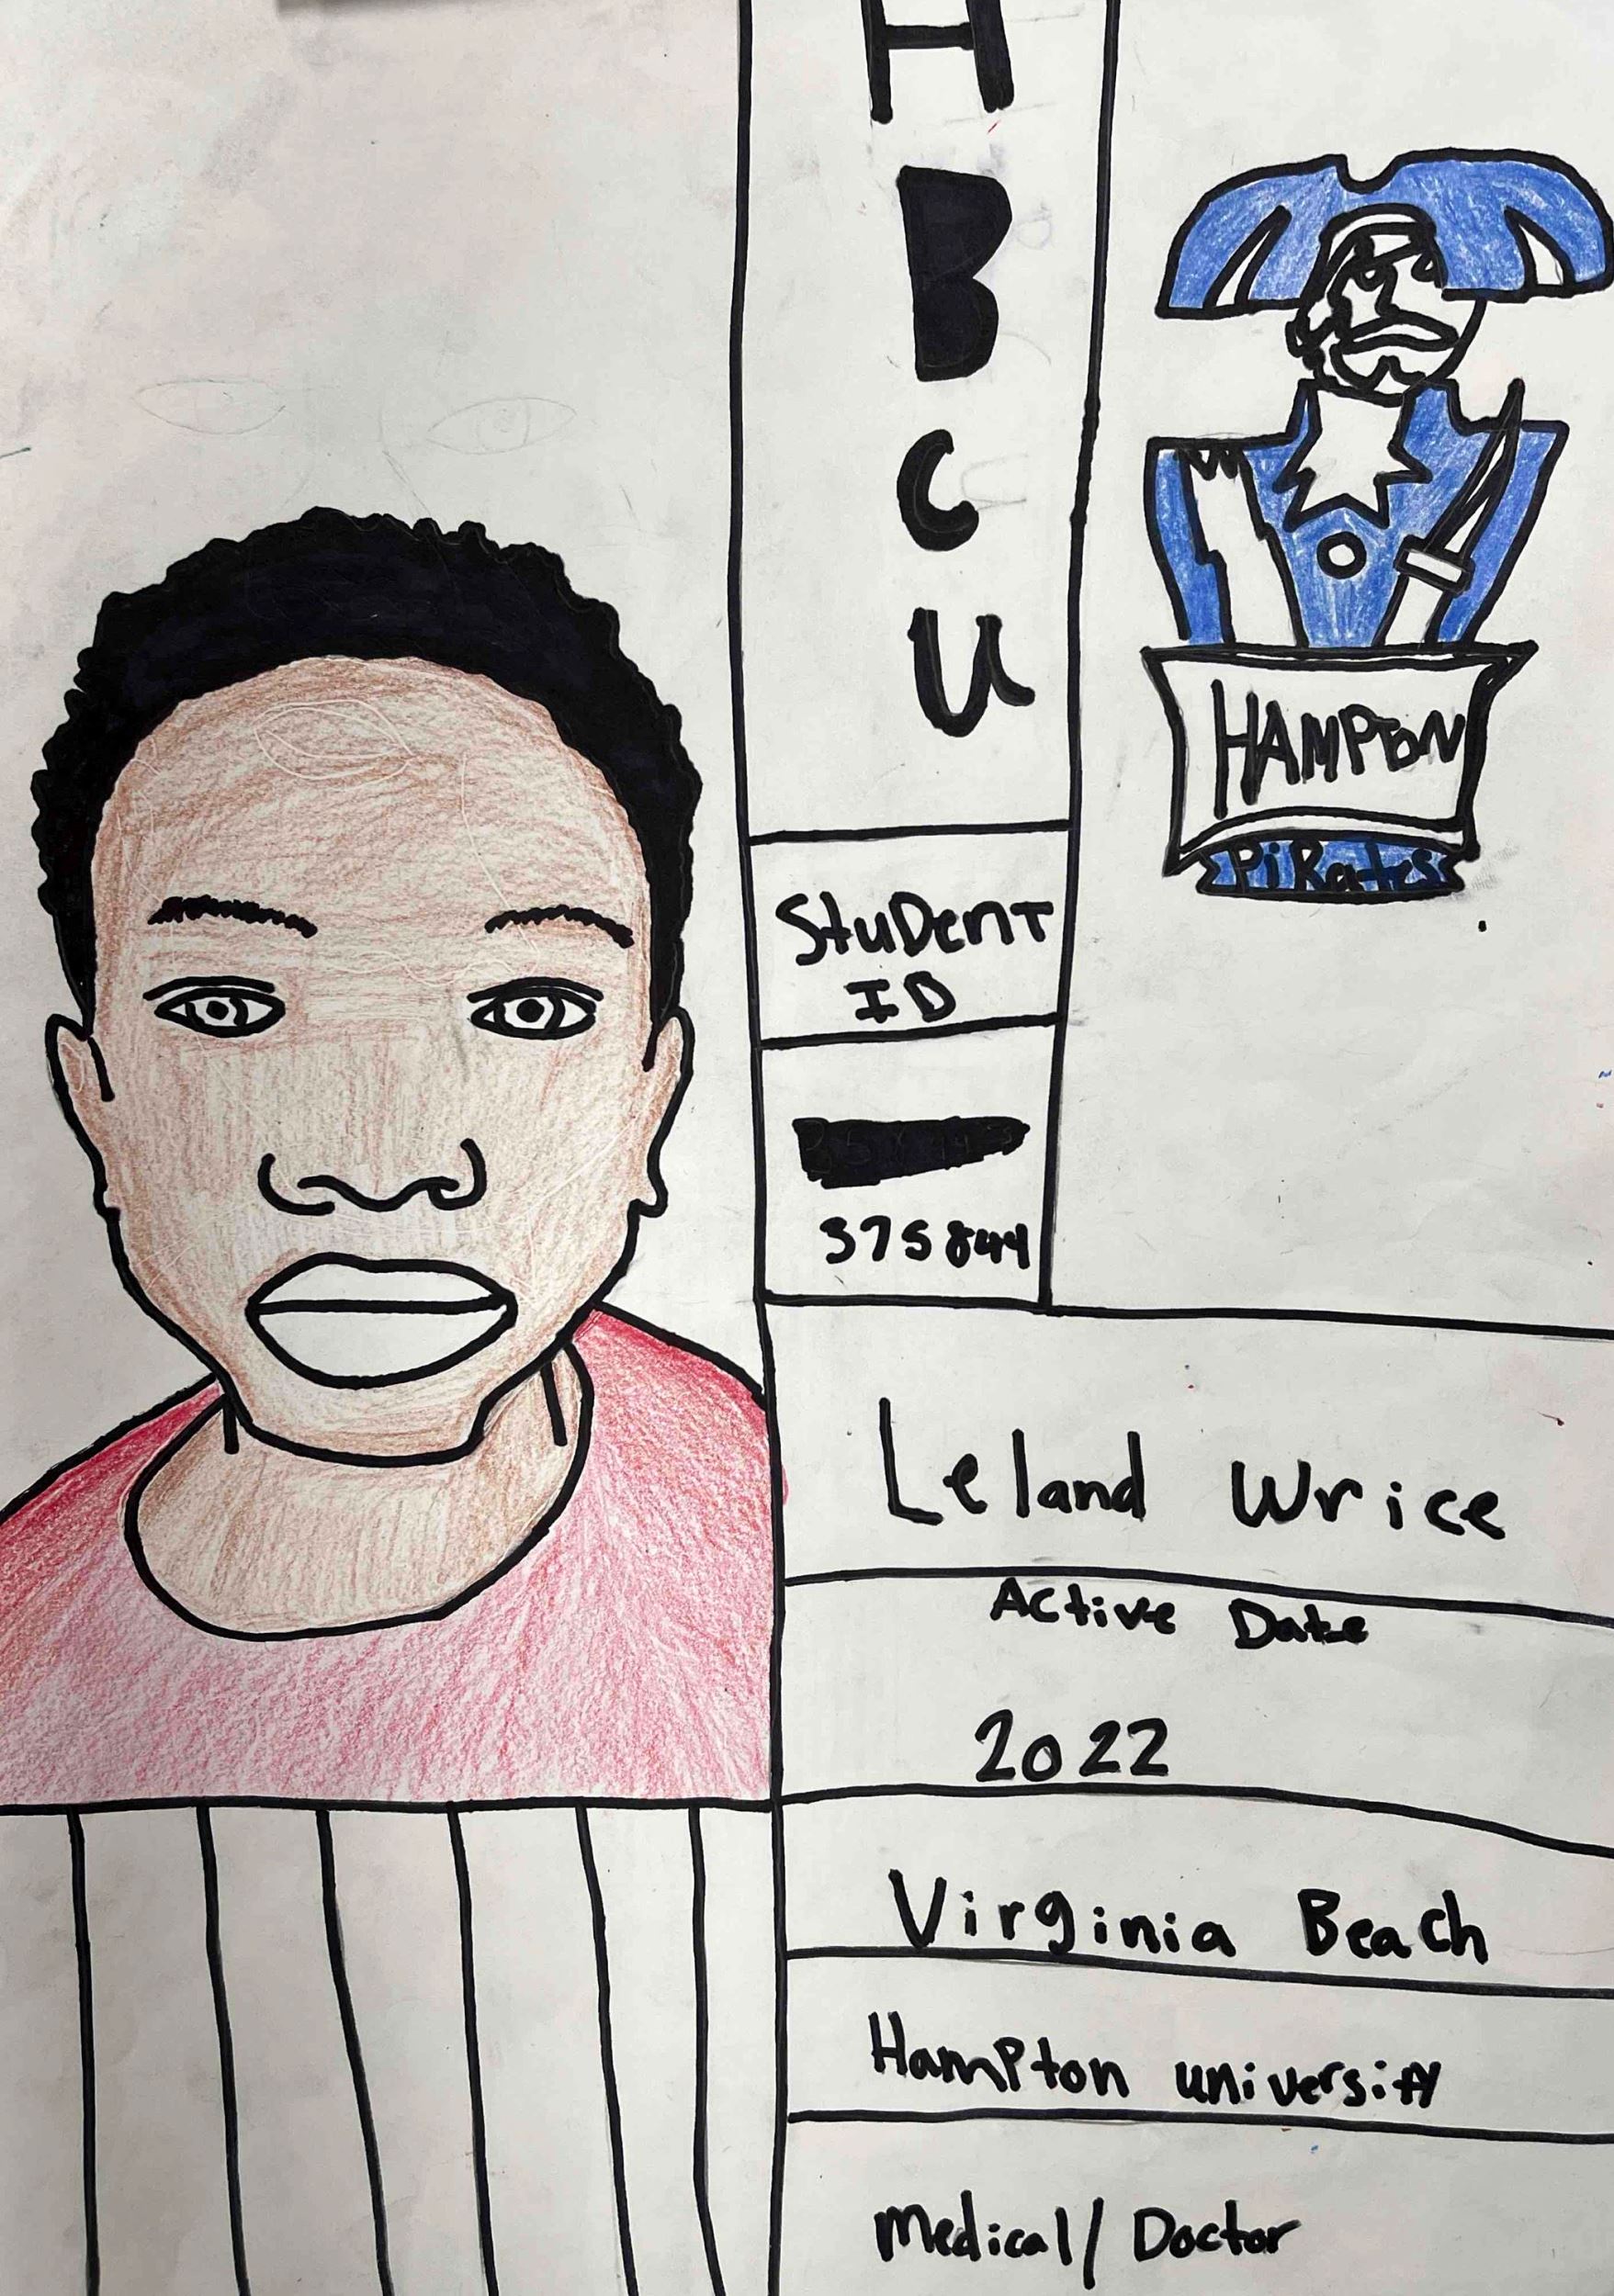 H
B
C
U
HAMPTON
PiRates
StuDenT
ID
375844
Leland Wrice
Active Date
2022
Virginia Beach
HamPton university
Medical/ Doctor